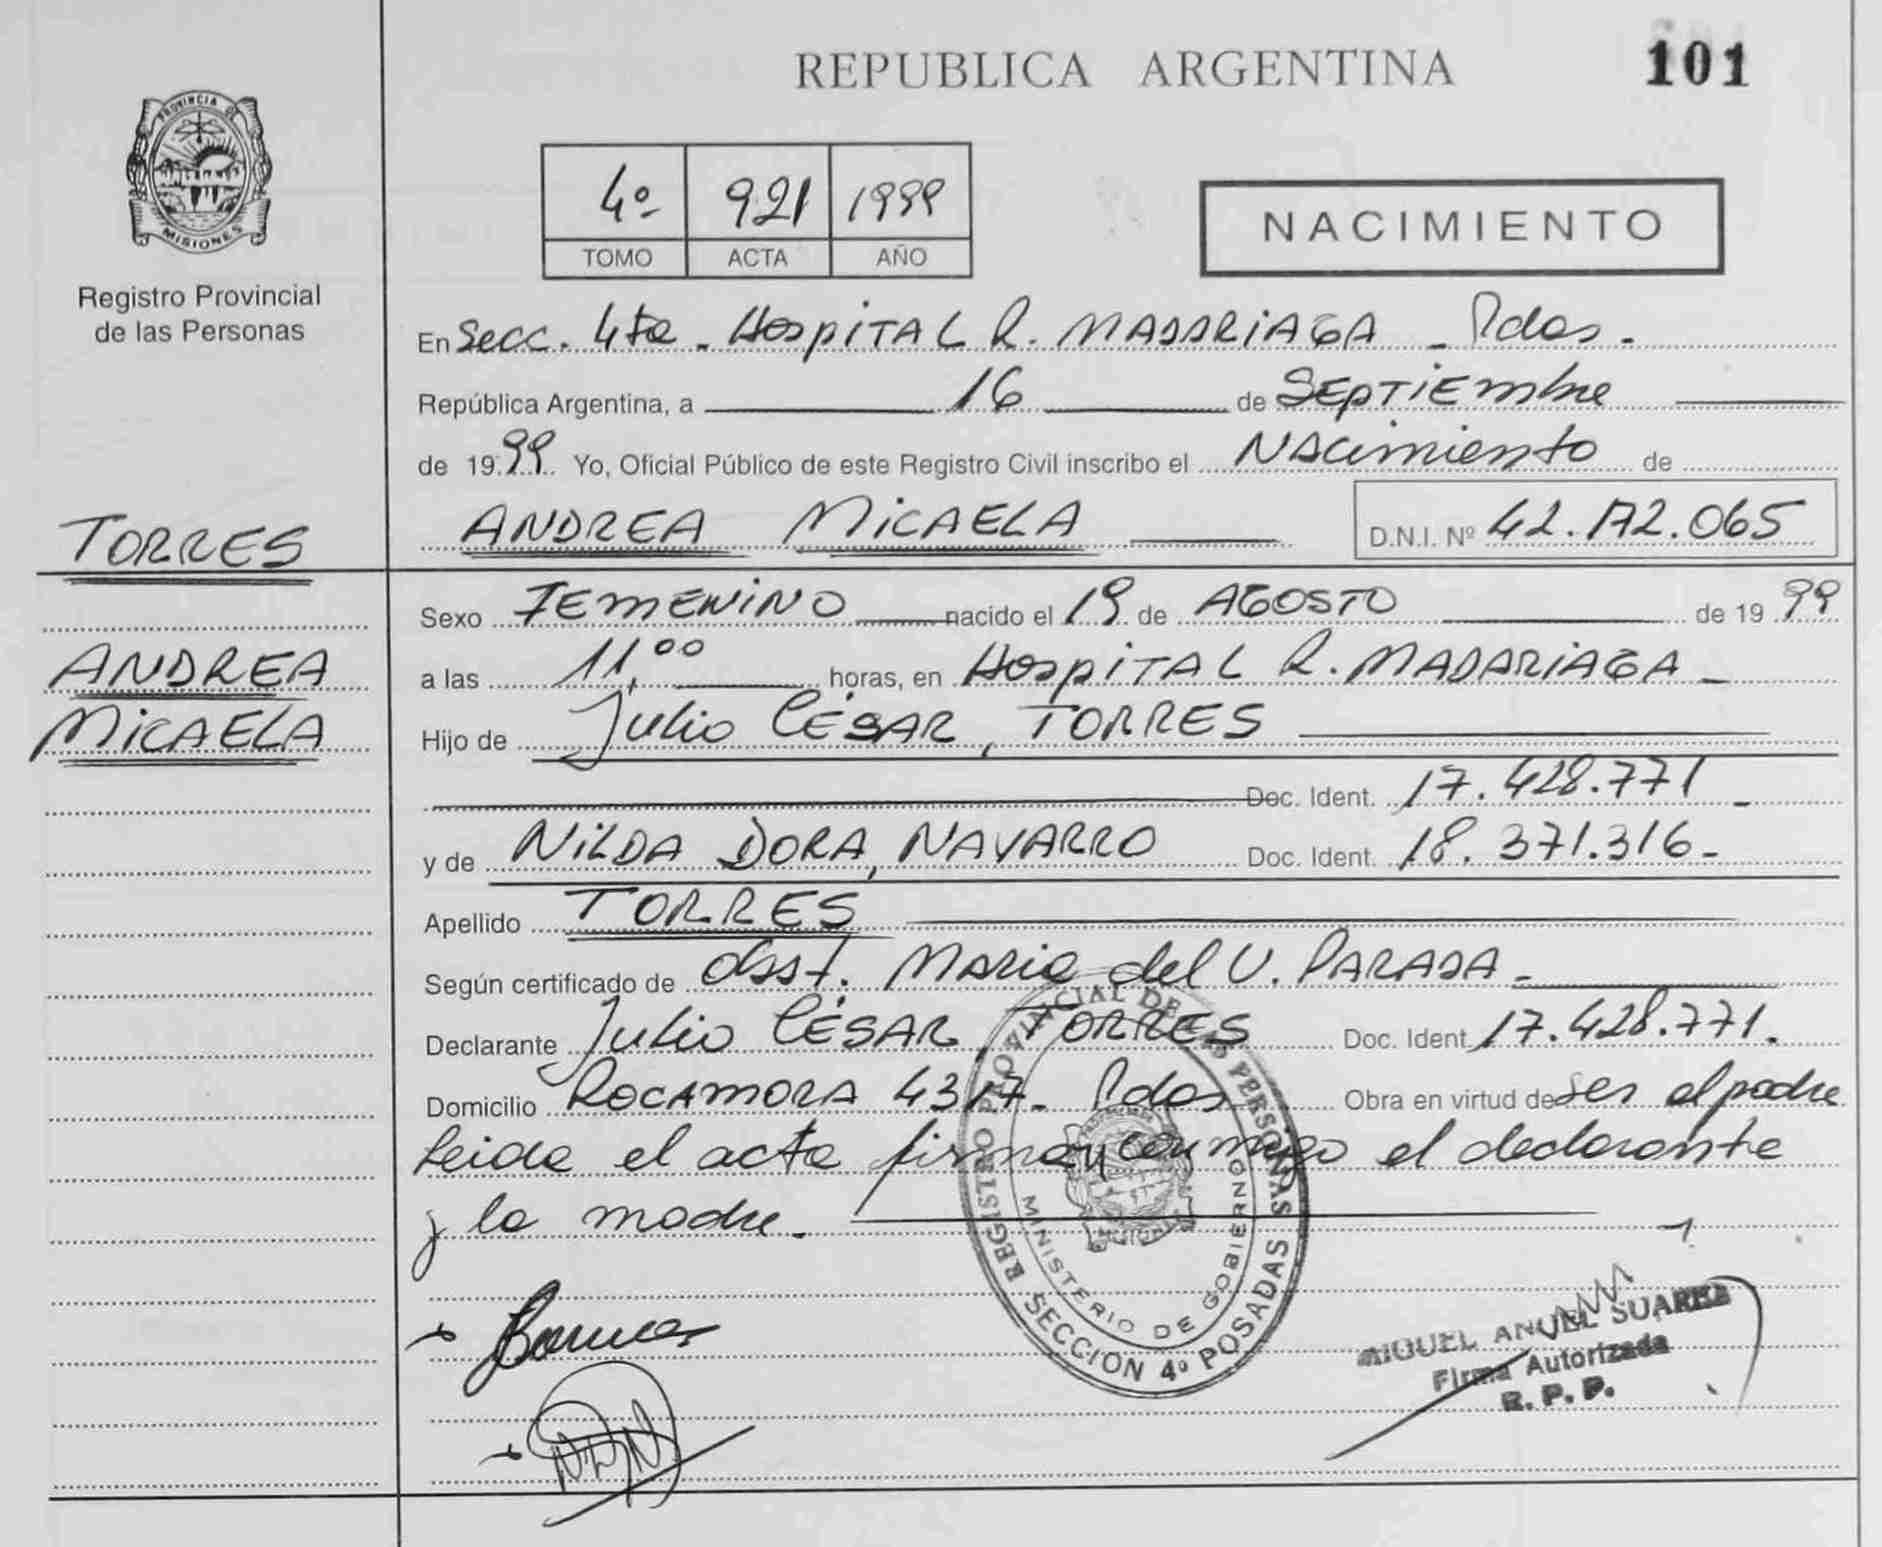 REPUBLICA ARGENTINA
101
PROVINCIA DE
MISIONES
Registro Provincial
de las Personas
4º 921 1999
TOMO ACTA AÑO
NACIMIENTO
En Secc. 4ta - Hospital R. MADARIAGA - Pdas.
República Argentina, a 16 de Septiembre
de 1999 Yo, Oficial Público de este Registro Civil inscribo el Nacimiento de
TORRES
ANDREA MICAELA D.N.I. Nº 42.172.065
Sexo FEMENINO nacido el 19 de AGOSTO de 1999
ANDREA
a las 11,00 horas, en Hospital R. MADARIAGA -
MICAELA
Hijo de Julio CÉSAR, TORRES
Doc. Ident. 17.428.771 -
y de NILDA DORA, NAVARRO Doc. Ident. 18.371.316 -
Apellido TORRES
Según certificado de Obst. Maria del V. PARADA -
Declarante Julio CÉSAR, TORRES Doc. Ident. 17.428.771.
Domicilio ROCAMORA 4317 - Pdas Obra en virtud de ser el padre
Leida el acta firman conmigo el declarante
y la madre.
REGISTRO PROVINCIAL DE LAS PERSONAS
MINISTERIO DE GOBIERNO
SECCION 4º POSADAS
MIGUEL ANGEL SUAREZ
Firma Autorizada
R. P. P.
NDN